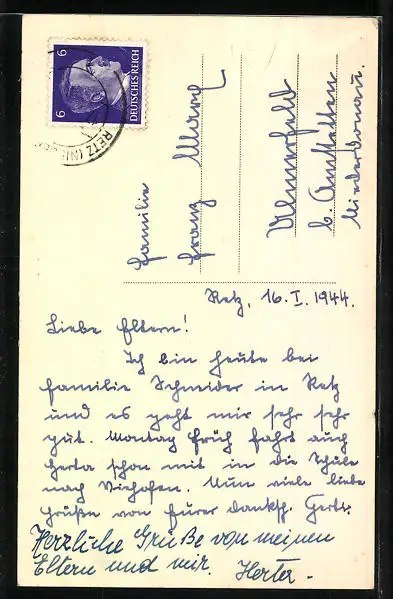 6
6
DEUTSCHES REICH
RETZ
Familie
Franz
Ulmerfeld
b. Amstetten
Niederdonau.
Retz, 16. I. 1944.
Liebe Eltern!
Ich bin heute bei
Familie Schneider in Retz
und es geht mir sehr sehr
gut. Montag früh fahrt auch
Herta schon mit in die Schule
nach Viehofen. Nun viele liebe
Grüße von Eurer dankb. Gerti.
Herzliche Grüße von meinen
Eltern und mir. Herta -